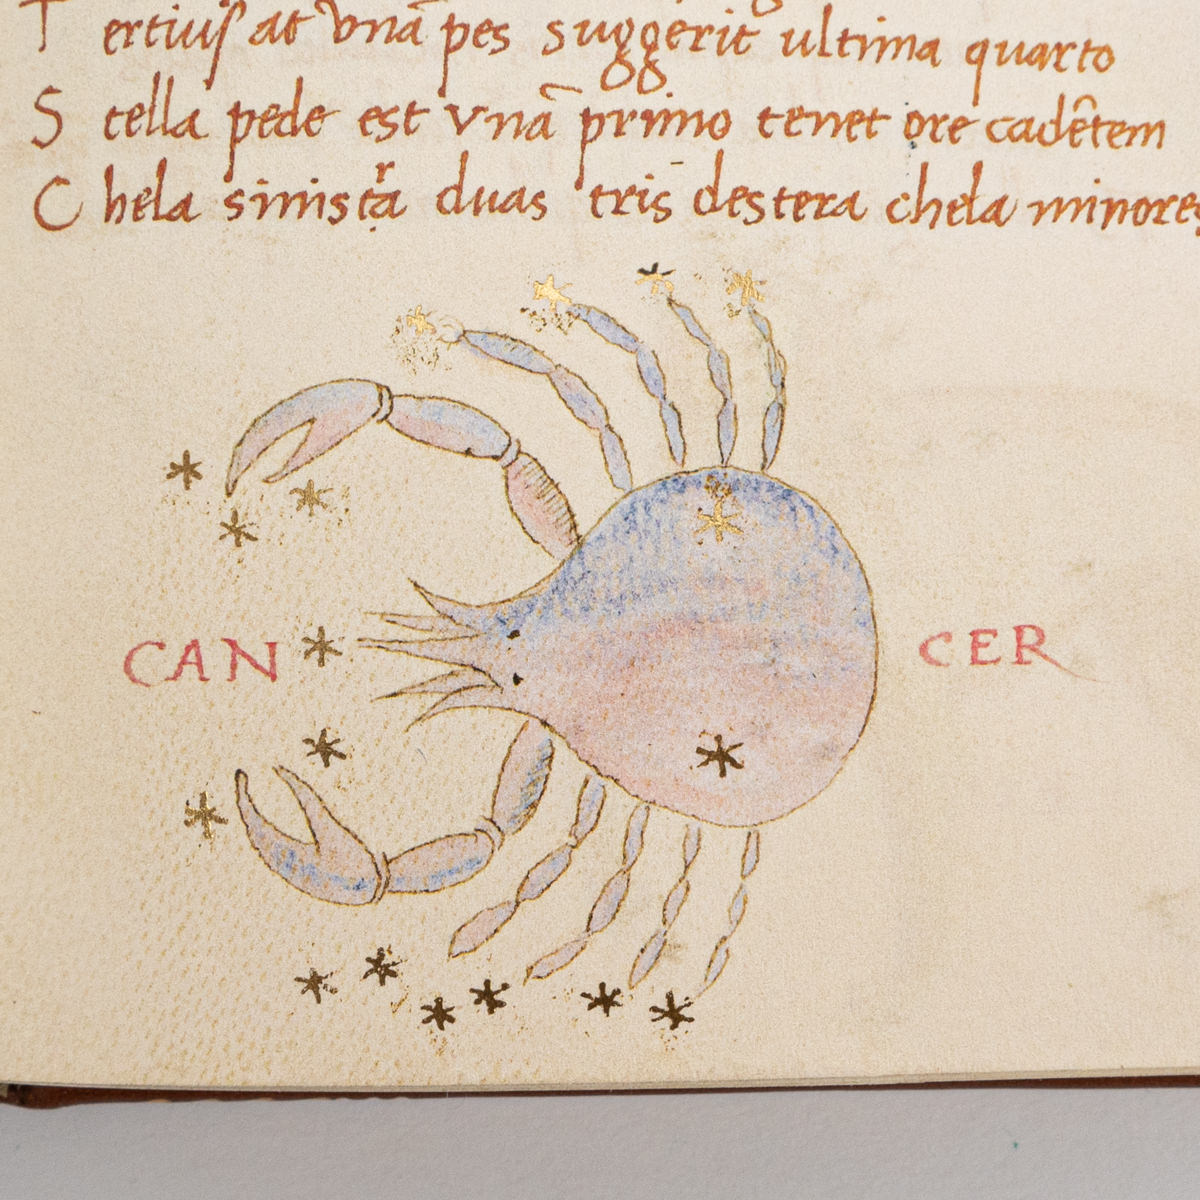 Tertius at vnã pes suggerit ultima quarto
Stella pede est vnã primo tenet ore cadẽtem
Chela sinistra duas tris destera chela minores
CAN CER